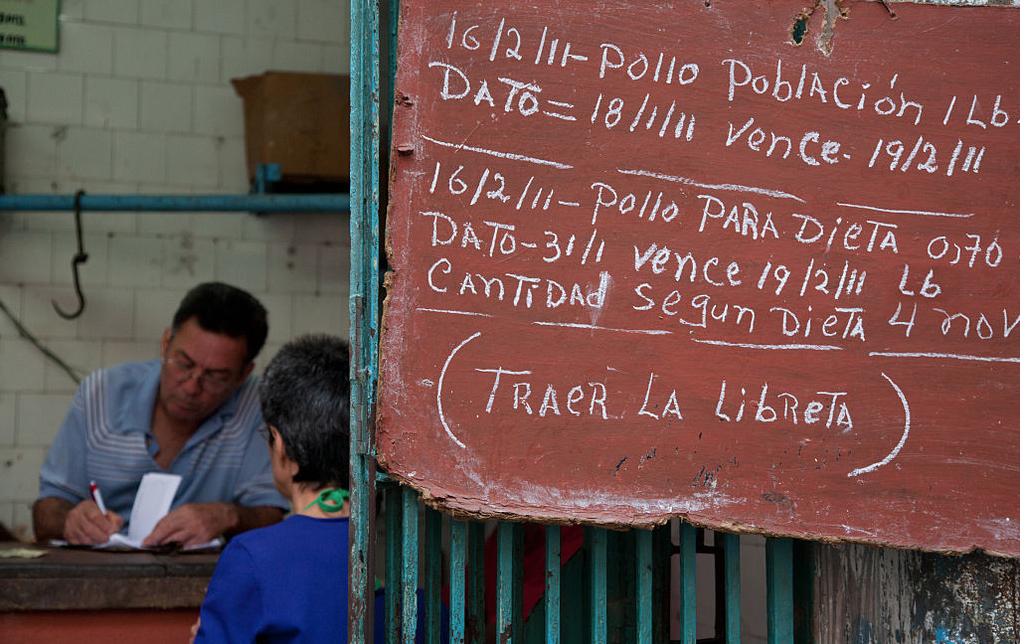 16/2/11- Pollo Población 1 Lb.
DATO= 18/1/11 vence. 19/2/11
16/2/11- Pollo PARA DieTA 0,70
DATO-31/1 vence 19/2/11 Lb
CANTiDAd segun DieTA 4 nov
(TRAeR LA LibReTA)